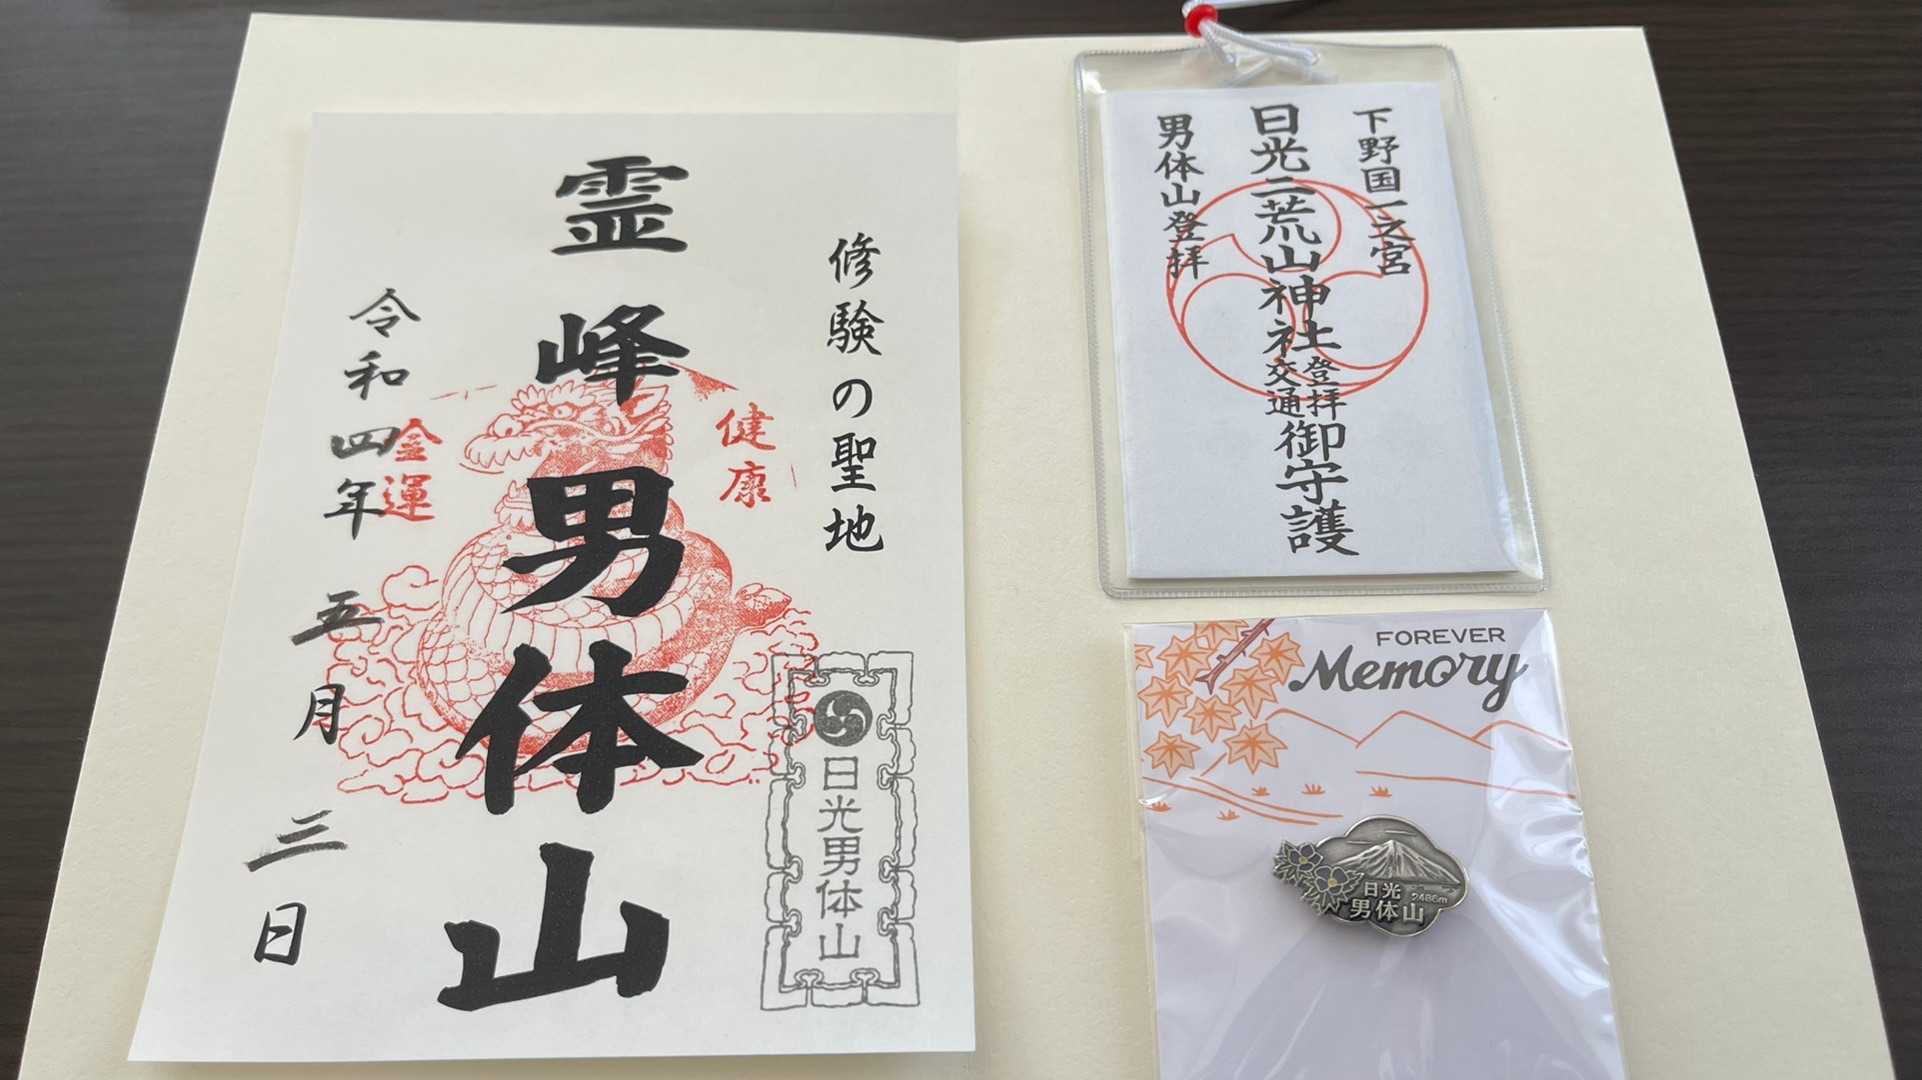 修験の聖地
健康
霊峰男体山
金運
令和四年五月三日
日光男体山
下野国一之宮
日光二荒山神社登拝交通御守護
男体山登拝
FOREVER
Memory
日光
男体山
2486m